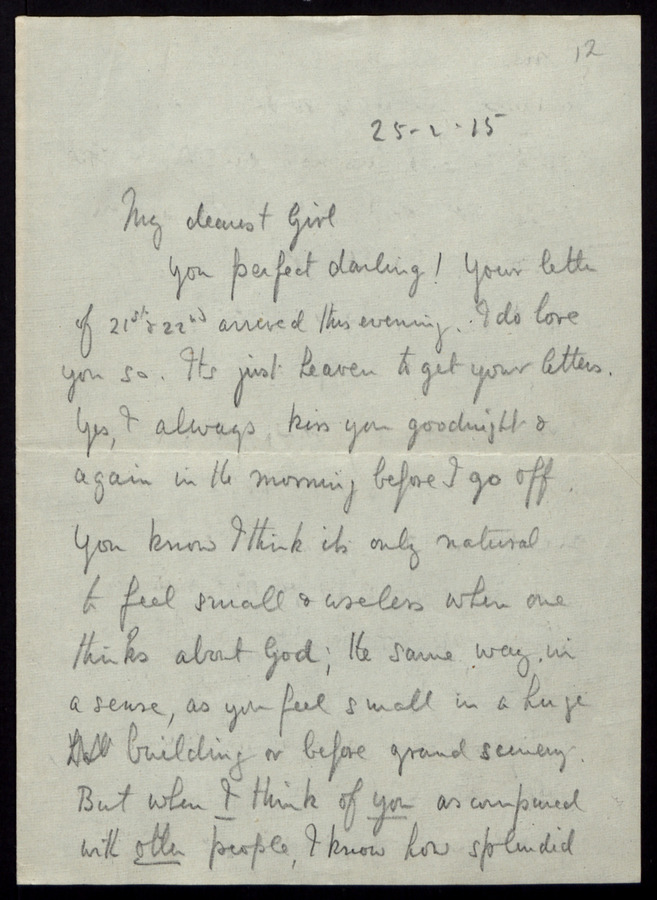 12
25-2-15
My dearest Girl
You perfect darling! Your letter
of 21st & 22nd arrived this evening. I do love
you so. Its just heaven to get your letters.
Yes, I always kiss you goodnight &
again in the morning before I go off.
You know I think its only natural
to feel small & useless when one
thinks about God; the same way, in
a sense, as you feel small in a huge
building or before grand scenery.
But when I think of you as compared
with other people, I know how splendid